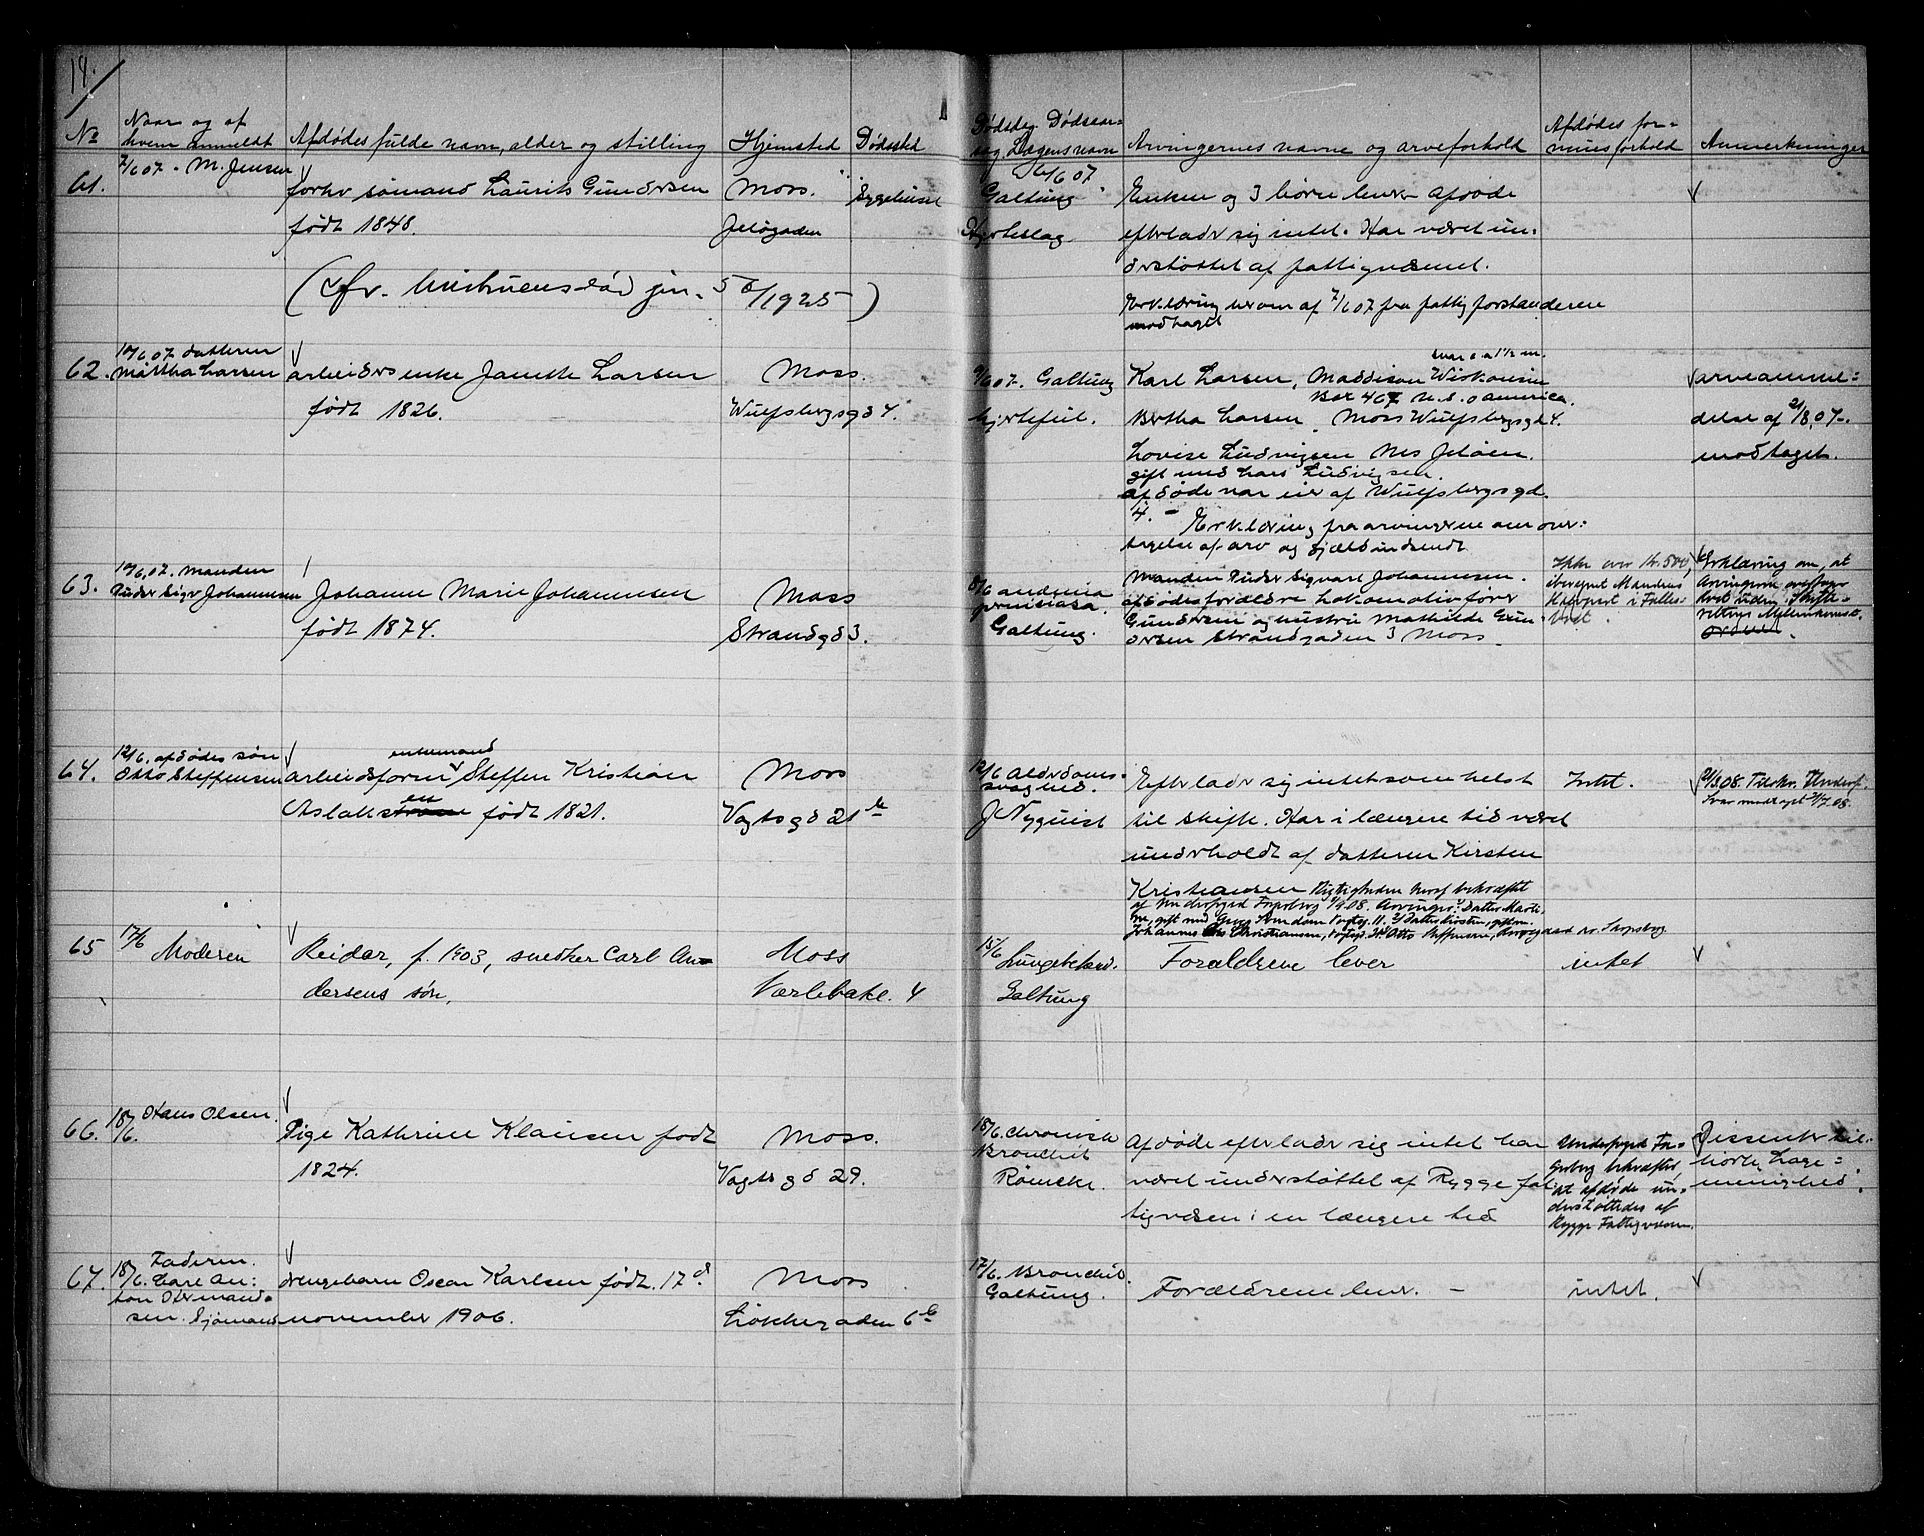 14.
No
Naar og af
hvem anmeldt
Afdødes fulde navn, alder og stilling
Hjemsted
Dødssted
Dødsdag. Dødsaar-
sag. Lægens navn
Arvingernes navne og arveforhold
Afdødes for-
mues forhold
Anmerkninger
61.
7/6 07 - M. Jensen
forhv sømand Laurits Gundersen
født 1848.
Moss.
Jeløgaden
Sygehuset
6/6 07
Galtung
Hjerteslag
Enken og 3 børn lever Afdøde
efterlader sig intet. Har været un-
derstøttet af fattigvæsenet.
Erklæring herom af 7/6 07 fra fattigforstanderen
modtaget
(cfr. hustruens død jnr. 58/1925)
62.
10/6 07 datteren
Martha Larsen
arbeiders enke Janette Larsen
født 1826.
Moss.
Wulfsbergsgd 4.
9/6 07. Galtung
hjertefeil.
svar c.a 1½ m.
Karl Larsen, Maddison Wiskonsin
Box 467 U.S. o america.
Bertha Larsen, Moss Wulfsbergsgd 4.
Lovise Ludvigsen Nes Jeløen.
gift med Lars Ludvigsen
afdøde var eier af Wulfsbergsgd.
4. - Erklæring fra arvingerne om over-
tagelse af arv og gjæld indsendt
arveanmel-
delse af 21/8.07.
modtaget.
63.
10/6.07. manden
Peder Sigv Johannesen
Johanne Marie Johannesen
født 1874.
Moss
Strandgd 3.
8/6 anæmia
perniciosa.
Galtung.
Manden Peder Sigvart Johannesen.
afdødes forældre Lokomotivfører
Gundersen og hustru Mathilde Gun-
dersen Strandgaden 3 Moss.
Ikke over kr. 500,
iberegnet Mandens
Halvpart i Fælles-
boet.
Erklæring om, at
Arvingerne overtager
boet uden Skifte-
rettens Mellemkomst.
64.
12/6. afdødes søn
Otto Steffensen
enkemand
arbeidsform Steffen Kristian
Aslaksen født 1821.
Moss
Vogtsgd 21 b
12/6 Alderdoms-
svaghed.
J Nyquist
Efterlader sig intet som helst
til skifte. Har i længere tid været
underholdt af datteren Kirsten
Kristiansen Rigtigheden heraf bekræftet
af Underfoged 1/9.08. Arvinger: 1/ Datter Marti-
ne, gift med 11. 2/ Datter Kirsten, gift m.
Johannes Christiansen, Otto Steffensen, Sarpsborg
Intet.
Svar modtaget 21/9.08.
65
17/6
Moderen
Reidar, f. 1903, snedker Carl An-
dersens søn,
Moss
Værlebakk. 4
15/6
Lungebetænd.
Galtung
Forældrene lever
intet
66.
18/6.
Hans Olsen.
Pige Kathrine Klausen født
1824.
Moss.
Vogts gd 29.
18/6. chronisk
Bronchit
Rømcke.
Afdøde efterlader sig intet har
været understøttet af Rygge fat-
tigvæsen i en længere tid
Underfoged
bekræfter,
at afdøde un-
derstøttedes af
Rygge Fattigvæsen.
Dissenter til-
hørte Lage-
menighed.
67.
Faderen.
18/6. Carl An-
ton Hermand-
sen. Sjømand
drengebarn Oscar Karlsen født. 17 d
november 1906.
Moss
Løkkegaden 6 b
17/6. Bronchit.
Galtung.
Forældrene lever. -
intet.